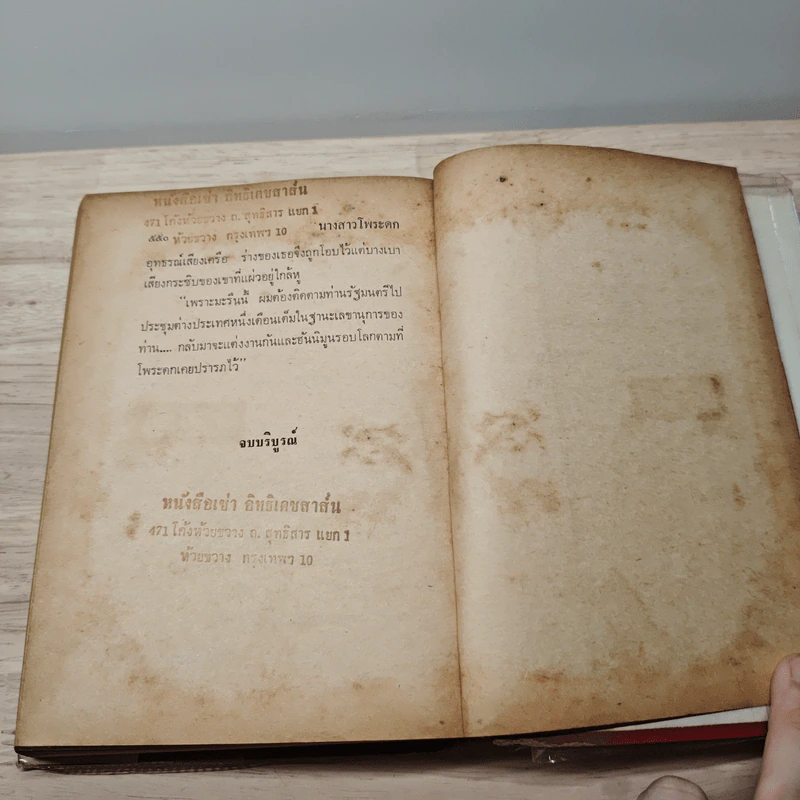 หนังสือเช่า อิทธิเดชสาส์น
471 โค้งห้วยขวาง ถ. สุทธิสาร แยก 1
๕๕๐ ห้วยขวาง กรุงเทพฯ 10 นางสาวโพระดก
อุทธรณ์เสียงเครือ ร่างของเธอจึงถูกโอบไว้แต่บางเบา
เสียงกระซิบของเขาที่แผ่วอยู่ใกล้หู
"เพราะมะรืนนี้ ผมต้องติดตามท่านรัฐมนตรีไป
ประชุมต่างประเทศหนึ่งเดือนเต็มในฐานะเลขานุการของ
ท่าน.... กลับมาจะแต่งงานกันและฮันนิมูนรอบโลกตามที่
โพระดกเคยปรารภไว้"
จบบริบูรณ์
หนังสือเช่า อิทธิเดชสาส์น
471 โค้งห้วยขวาง ถ. สุทธิสาร แยก 1
ห้วยขวาง กรุงเทพฯ 10